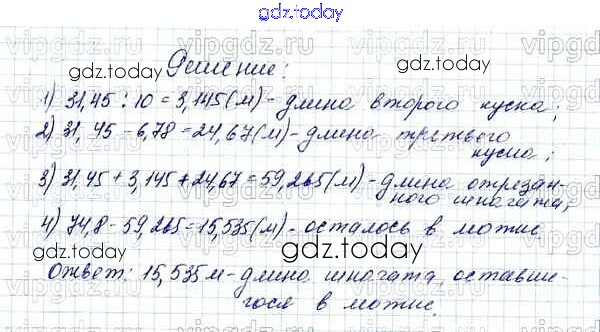 gdz.today
vipgdz.ru vipgdz.ru vipgdz.ru
gdz.today Решение: gdz.today
1) 31,45 : 10 = 3,145 (м) - длина второго куска;
2) 31,45 - 6,78 = 24,67 (м) - длина третьего
куска;
3) 31,45 + 3,145 + 24,67 = 59,265 (м) - длина отрезан-
ного шпагата;
4) 74,8 - 59,265 = 15,535 (м) - осталось в мотке.
gdz.today gdz.today
Ответ: 15,535 м - длина шпагата, оставше-
гося в мотке.